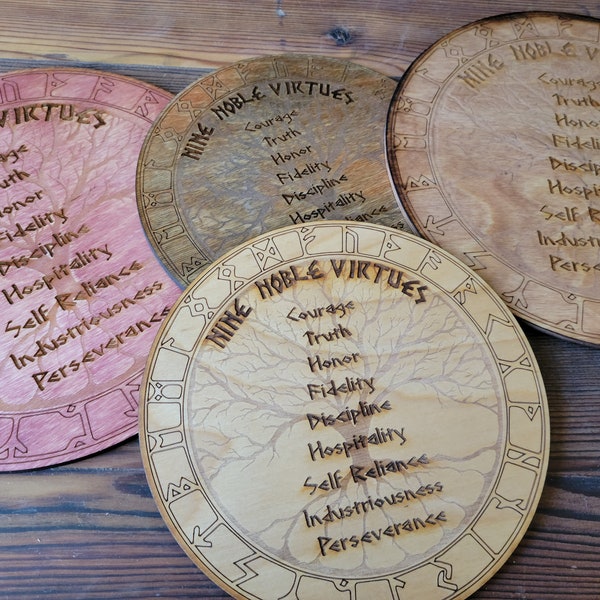 VIRTUES
Courage
Truth
Honor
Fidelity
Discipline
Hospitality
Self Reliance
Industriousness
Perseverance
NINE NOBLE VIRTUES
Courage
Truth
Honor
Fidelity
Discipline
Hospitality
NINE NOBLE VIRTUES
Courage
Truth
Honor
Fidelity
Discipline
Hospi
Self Re
Industrious
Persev
NINE NOBLE VIRTUES
Courage
Truth
Honor
Fidelity
Discipline
Hospitality
Self Reliance
Industriousness
Perseverance